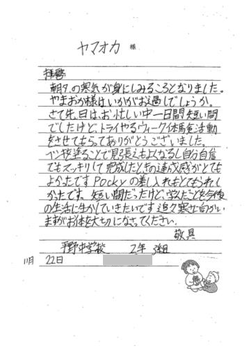 ヤマオカ 様
拝啓
朝夕の寒気が身にしみるころとなりました。
やまおか様はいかがお過しでしょうか。
さて先日は、お忙しい中一日間短い間
でしたけど、トライやるウィーク体馬食活動
をさせてもらってありがとうございました。
ペンキ塗ることで見張えもよくなるし自分自信
でもスッキリして完成したときの達成感がとても
よかったです Pockyの差し入れもとてもうれし
かったです。短い間だったけど、学んだことを今後
の生活に生かしていきたいです 追々寒さ
ますがお体を大切になさってください。
敬具
中学校 2年
11月 22日